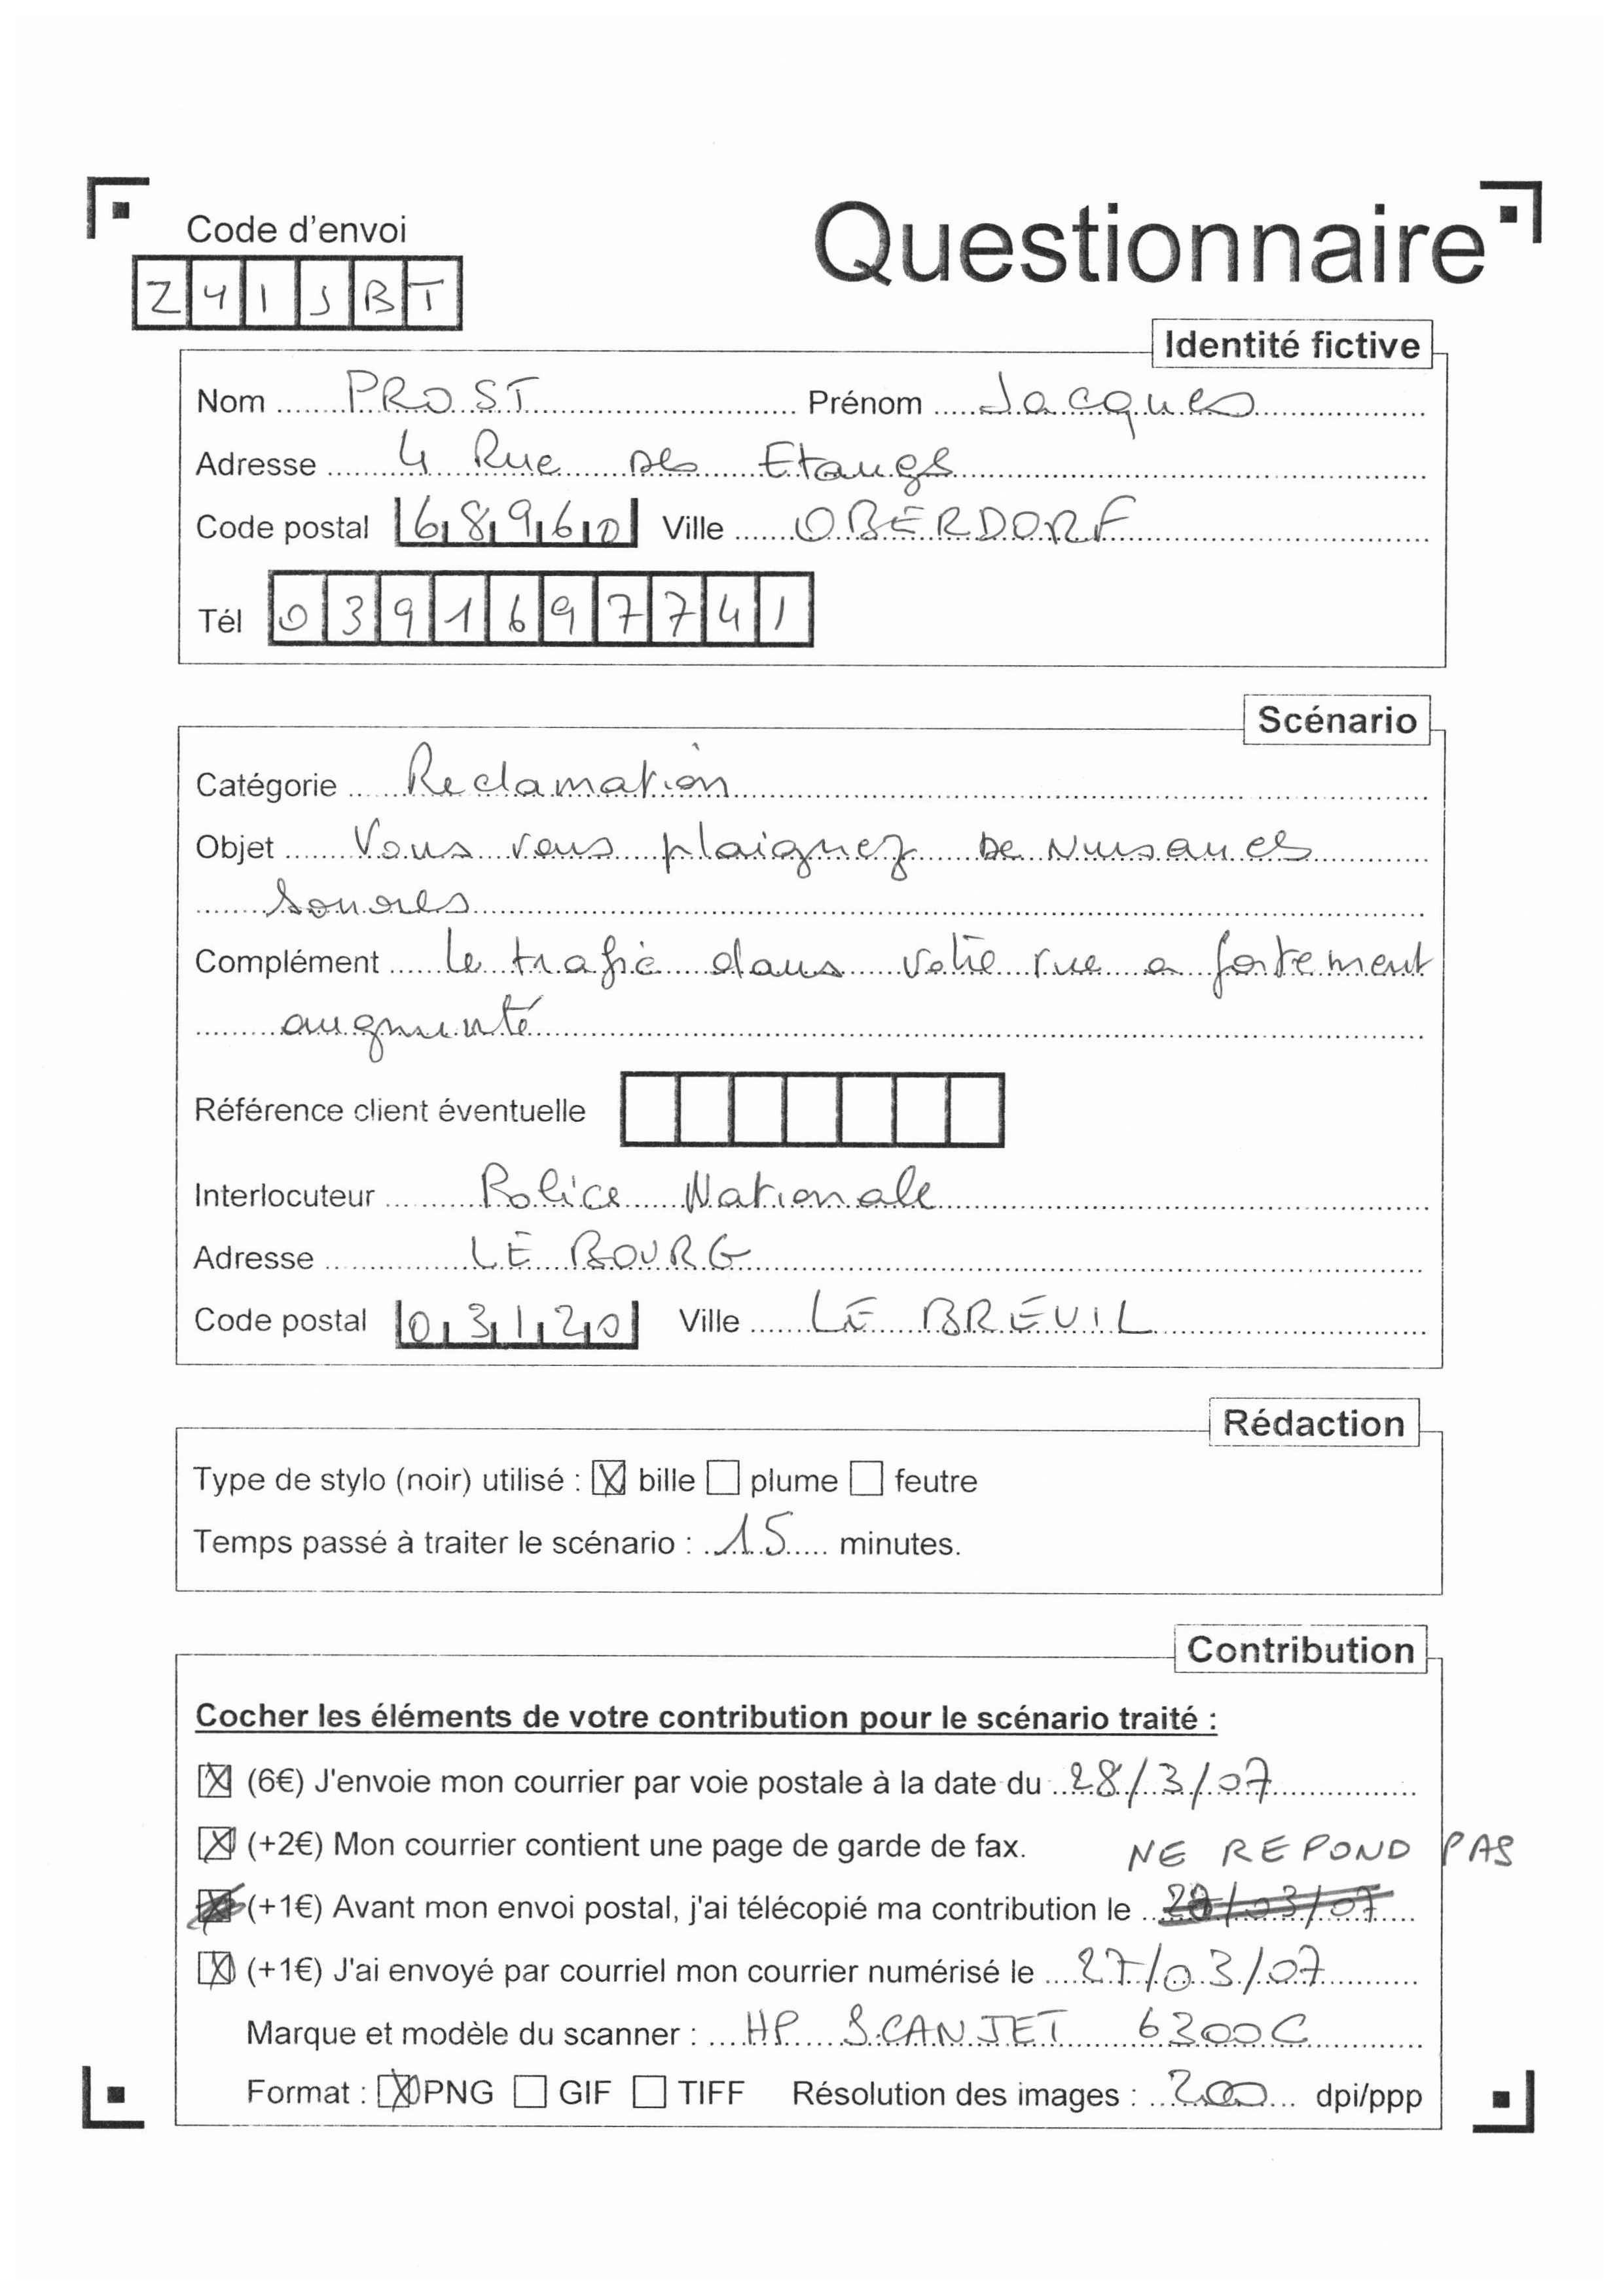 Code d'envoi
Questionnaire
Z41JBT
Identité fictive
Nom PROST Prénom Jacques
Adresse 4 Rue des Etangs
Code postal 68960 Ville OBERDORF
Tél 0391697741
Scénario
Catégorie Reclamation
Objet Vous vous plaignez de Nuisances
sonores
Complément le trafic dans votre rue a fortement
augmenté
Référence client éventuelle
Interlocuteur Police Nationale
Adresse LE BOURG
Code postal 03120 Ville LE BREUIL
Rédaction
Type de stylo (noir) utilisé : bille plume feutre
Temps passé à traiter le scénario : 15 minutes.
Contribution
Cocher les éléments de votre contribution pour le scénario traité :
(6€) J'envoie mon courrier par voie postale à la date du 28/3/07
(+2€) Mon courrier contient une page de garde de fax. NE REPOND PAS
(+1€) Avant mon envoi postal, j'ai télécopié ma contribution le /03/07
(+1€) J'ai envoyé par courriel mon courrier numérisé le 27/03/07
Marque et modèle du scanner : HP SCANJET 6300C
Format : PNG GIF TIFF Résolution des images : 200 dpi/ppp